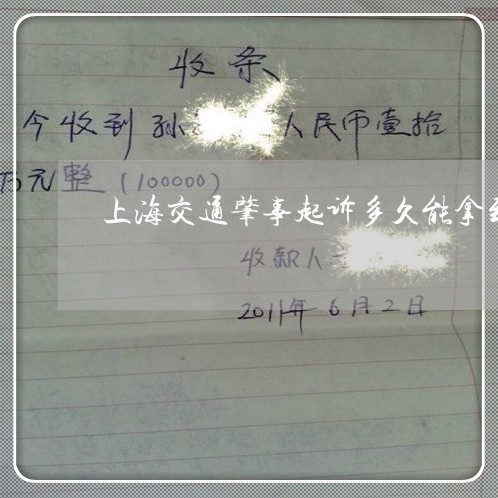 收条
今收到孙 人民币壹拾
万元整(100000)
上海交通肇事起诉多久能拿
收款人
2011年6月2日